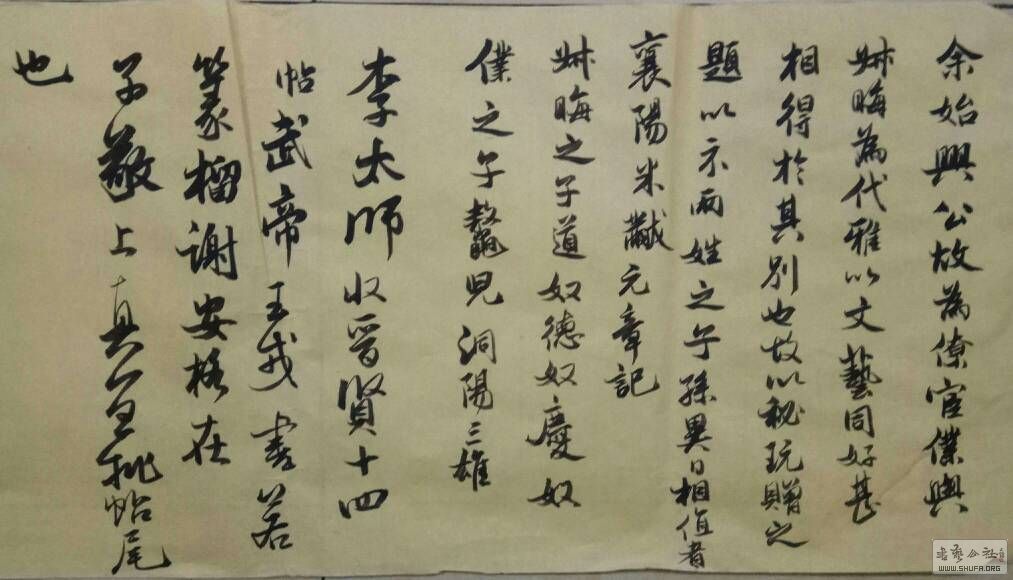 余始興公故為僚宦僕與
叔晦為代雅以文藝同好甚
相得於其別也故以秘玩贈之
題以示兩姓之子孫異日相值者
襄陽米黻元章記
叔晦之子道奴德奴慶奴
僕之子鼇兒洞陽三雄
李太師收晉賢十四
帖武帝王戎書若
篆榴謝安格在
子敬上真宜批帖尾
也
書藝公社
WWW.SHUFA.ORG